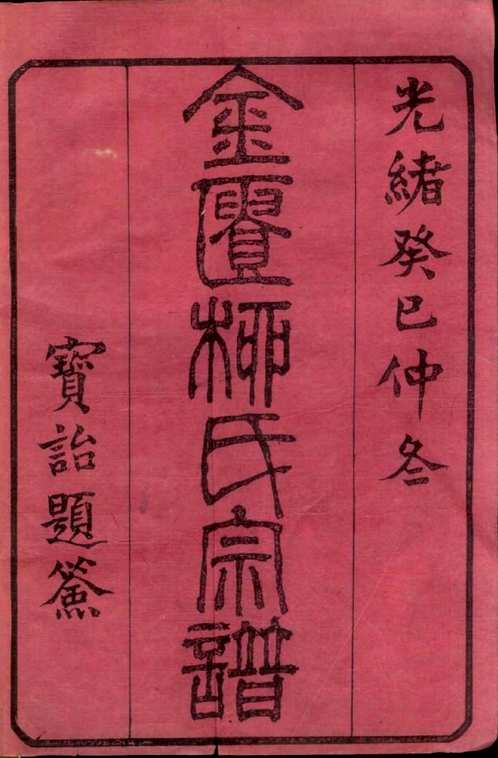 光緒癸巳仲冬
金匱柳氏宗譜
寶詒題簽